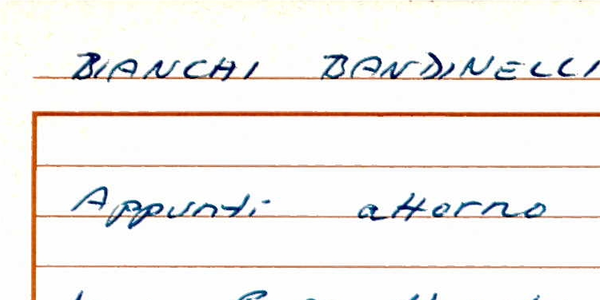 BIANCHI BANDINELLI
Appunti attorno